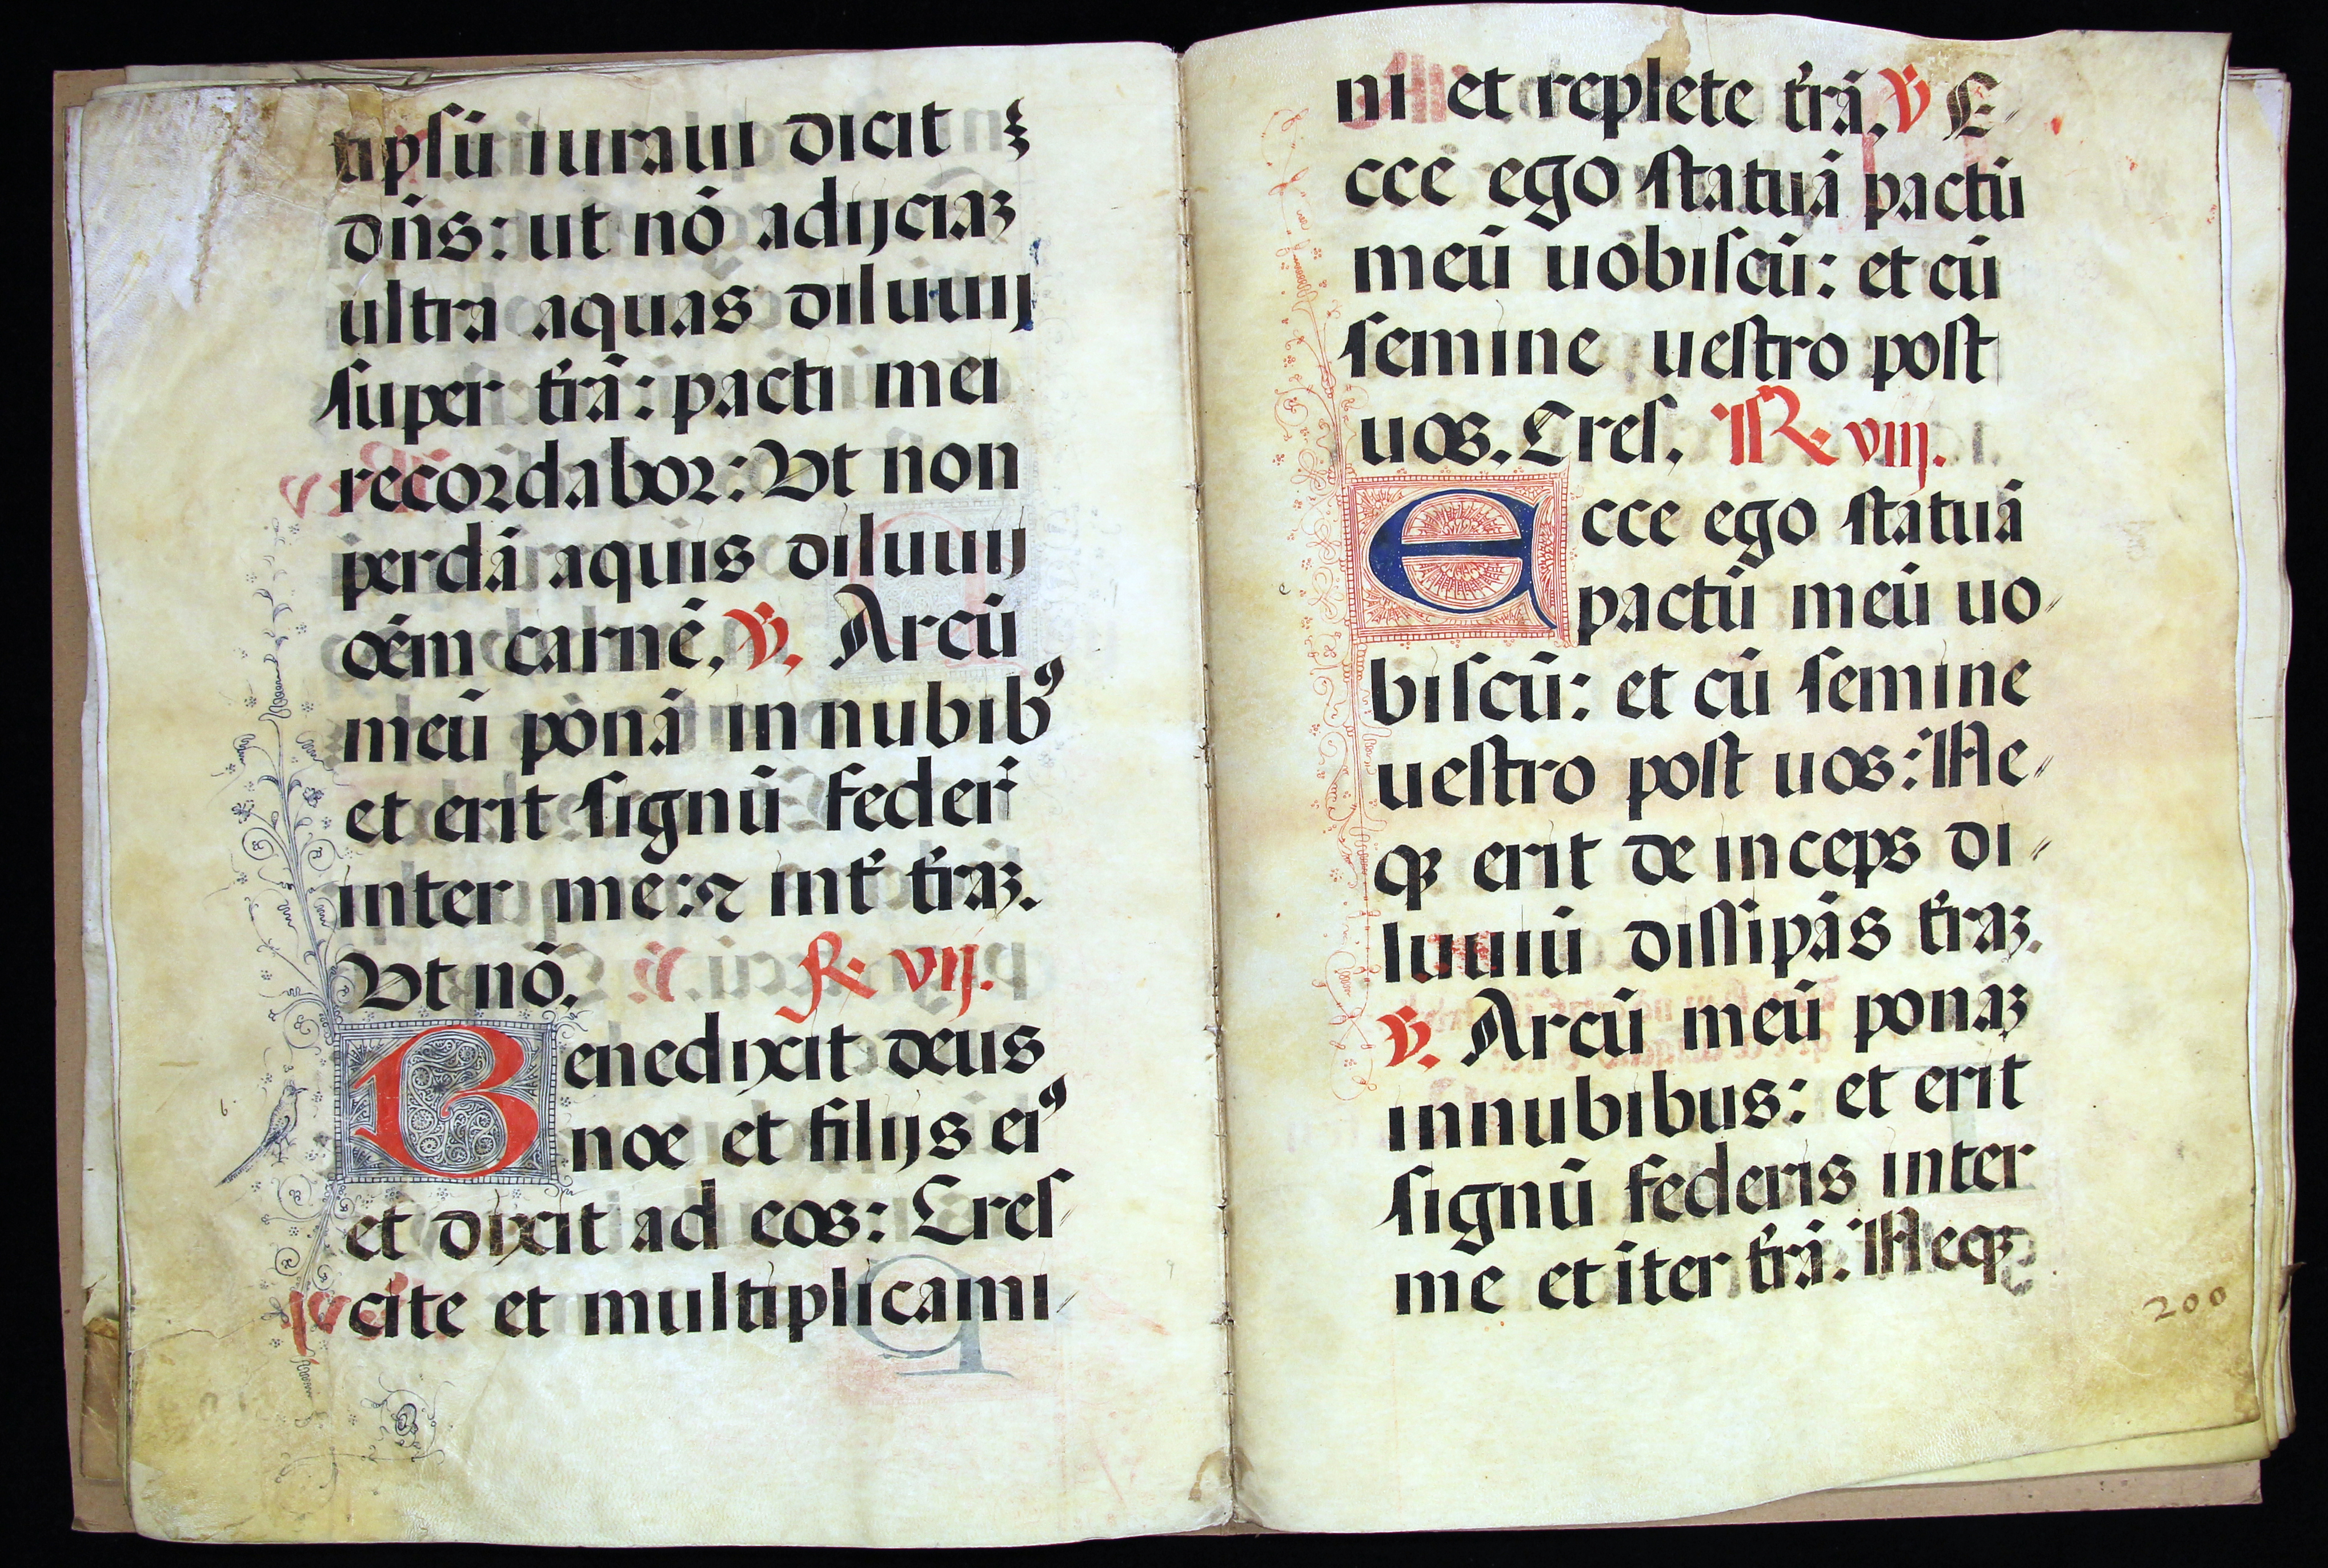 tipsū iuraui dicit
dn̄s: ut nō adijciaꝫ
ultra aquas diluuij
super t̄rā: pacti mei
recordabor: Ut non
perdā aquis diluuij
oēm carnē, ℣. Arcū
meū ponā in nubibꝰ
et erit signū federꝭ
inter me: ⁊ int̄ t̄raꝫ.
Ut nō. ℟. vij.
Benedixit deus
noe et filijs eiꝰ
et dixit ad eos: Cres
cite et multiplicami
ni et replete t̄rā, ℣ E
cce ego statuā pactū
meū uobiscū: et cū
semine uestro post
uos. Cres. ℟. viij.
Ecce ego statuā
pactū meū uo
biscū: et cū semine
uestro post uos: Ne
qꝫ erit de inceps di
luuiū dissipās t̄raꝫ.
℣. Arcū meū ponaꝫ
in nubibus: et erit
signū federis inter
me et īter t̄rā: Neqꝫ
200